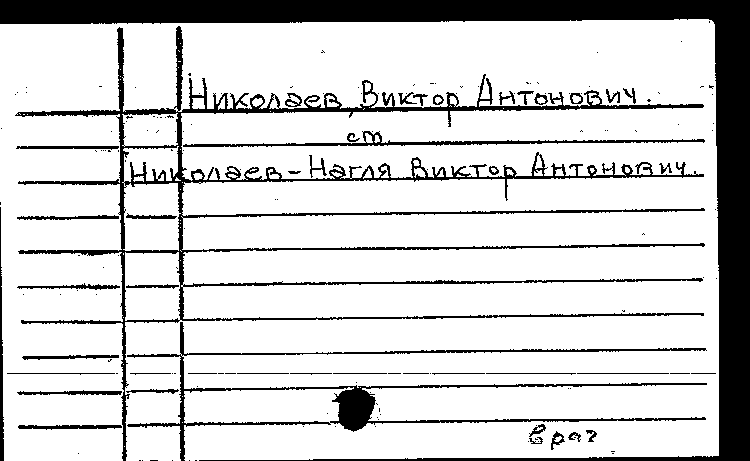 Николаев, Виктор Антонович.
ст.
Николаев-Нагля Виктор Антонович.
враг